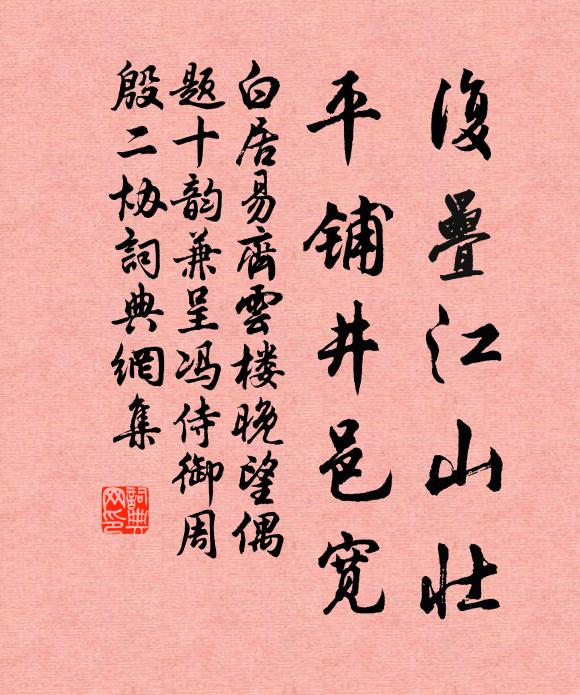 復疊江山壯
平鋪井邑寬
白居易齊雲楼晚望偶
题十韵兼呈冯侍御周
殷二协詞典網集
詞典
网印